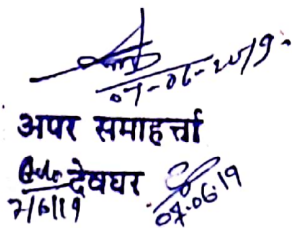 07-06-2019.
अपर समाहर्त्ता
देवघर
7/6/19
07.06.19